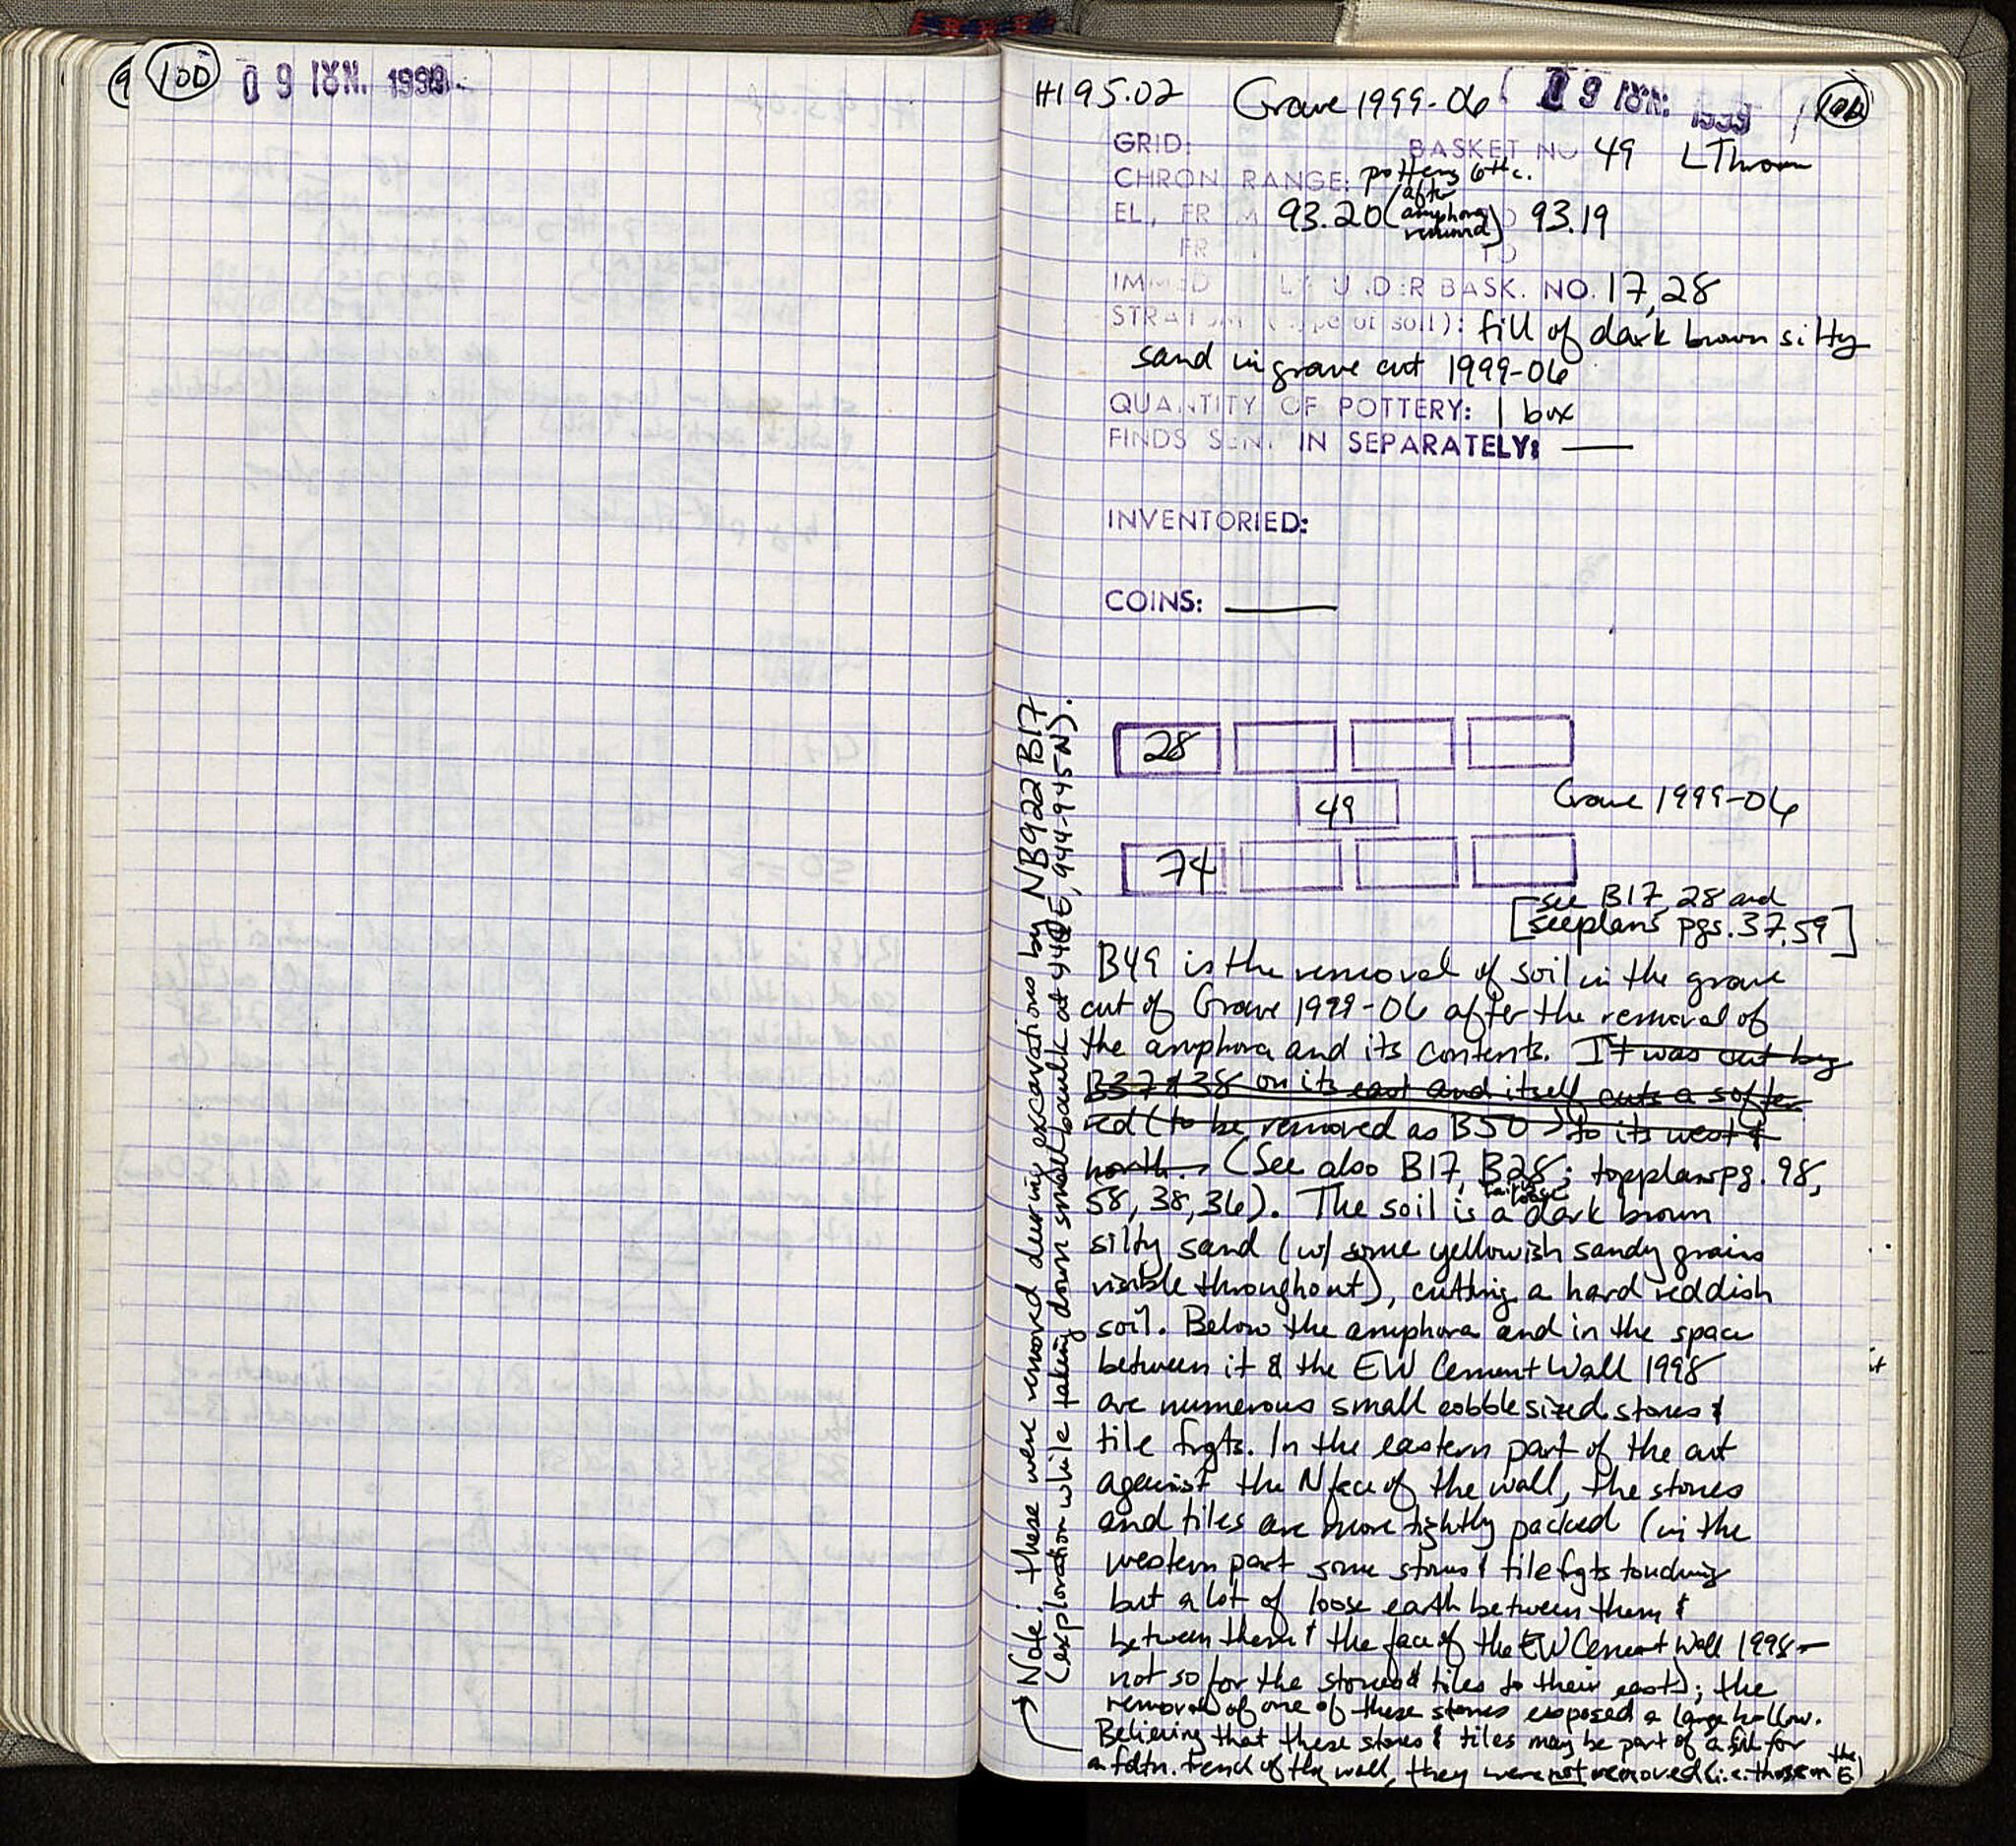 100 09 ΙΟΥΝ. 1999
H195.02 Grave 1999-06 09 ΙΟΥΝ. 1999
GRID: BASKET NO 49 L Thvom
CHRON RANGE: pottery 6th c.
EL., FR M 93.20 (after amphora removed) 93.19
FR TO
IMMED LY U DER BASK. NO. 17, 28
STRATUM (type of soil): fill of dark brown silty
sand in grave cut 1999-06
QUANTITY OF POTTERY: 1 box
FINDS SENT IN SEPARATELY: —
INVENTORIED:
COINS: —
28
49 Grave 1999-06
74
[see B17, 28 and
see plans pgs. 37, 59]
B49 is the removal of soil in the grave
cut of Grave 1999-06 after the removal of
the amphora and its contents. It was cut by
B37 & 38 on its east and itself cuts a softer
red (to be removed as B50) to its west &
north. (See also B17, B28; topplans pg. 98,
58, 38, 36). The soil is a fairly loose dark brown
silty sand (w/ some yellowish sandy grains
visible throughout), cutting a hard reddish
soil. Below the amphora and in the space
between it & the EW Cement Wall 1998
are numerous small cobble sized stones &
tile frgts. In the eastern part of the cut
against the N face of the wall, the stones
and tiles are more tightly packed (in the
western part some stones & tile frgts touching
but a lot of loose earth between them &
between them & the face of the EW Cement Wall 1998 –
not so for the stones & tiles to their east); the
removal of one of these stones exposed a large hollow.
Believing that these stones & tiles may be part of a fill for
a fdtn. trench of the wall, they were not removed (i.e. those on the E)
→ Note: these were removed during excavations by NB922 B17
(exploration while taking down small baulk at E, 944-945N).